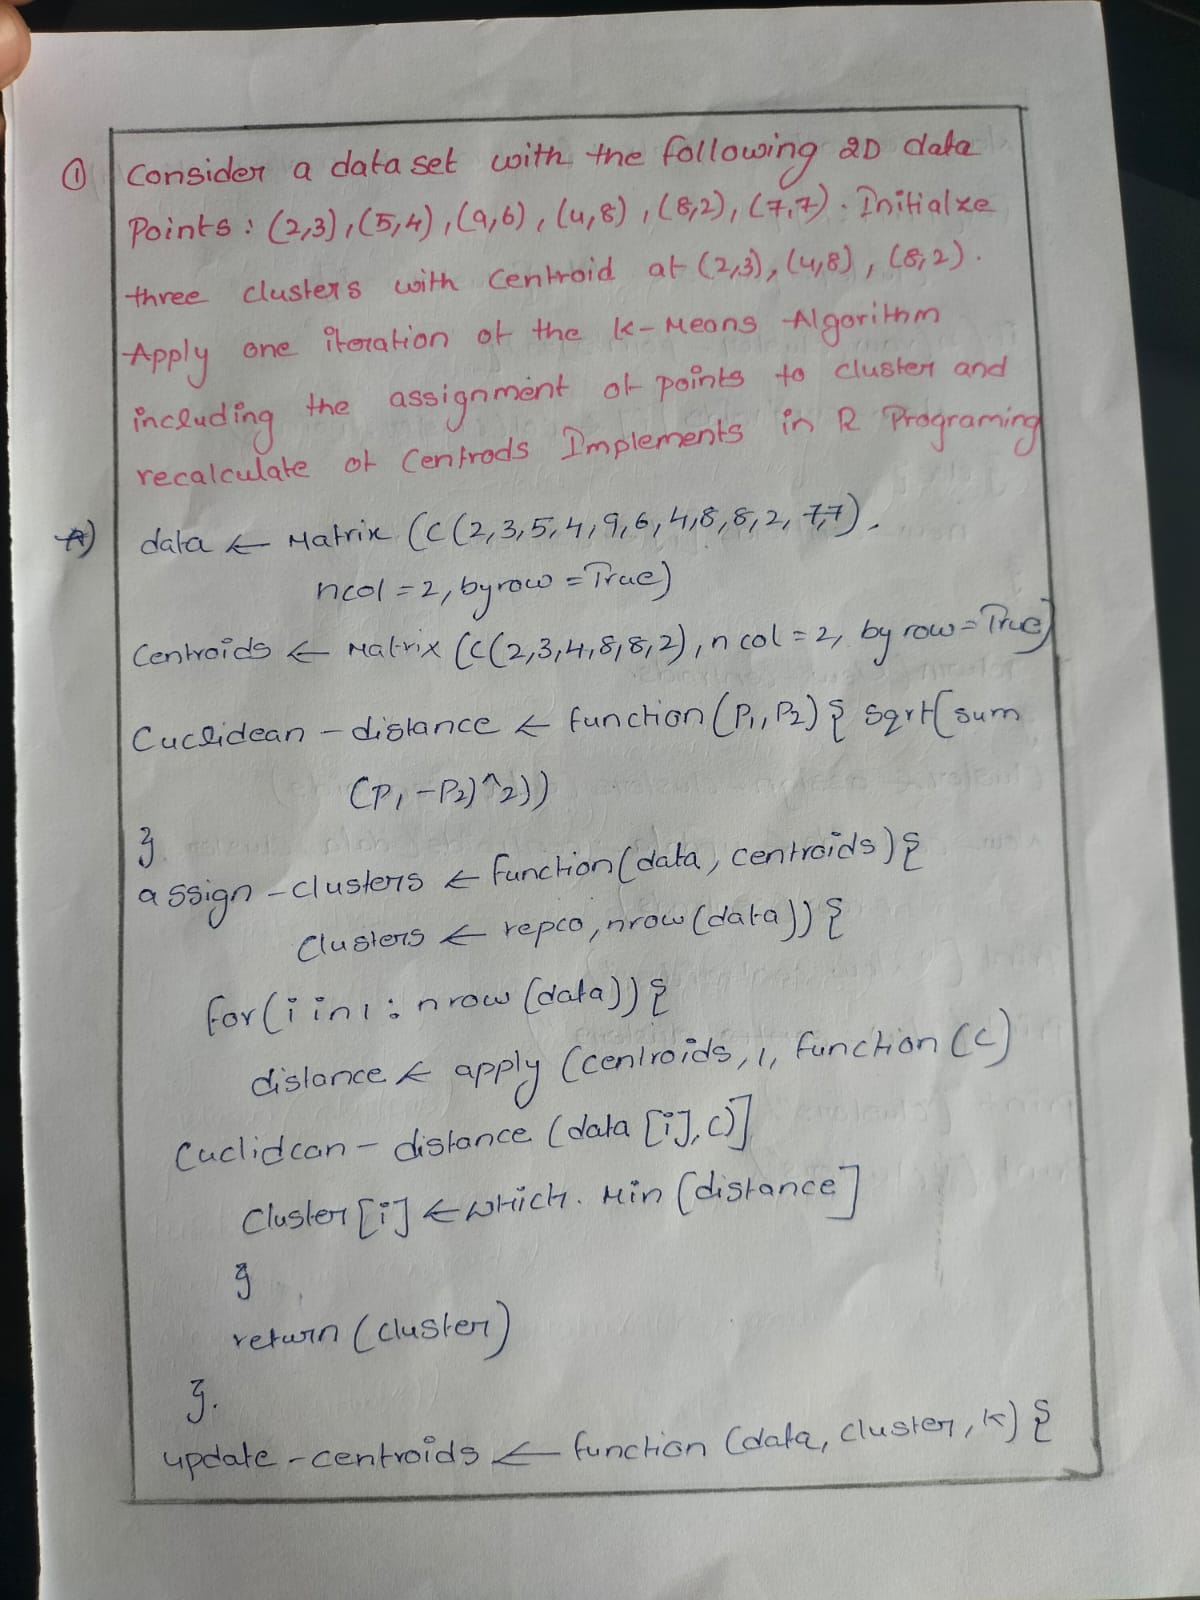 ① Consider a data set with the following 2D data
Points : (2,3), (5,4), (9,6), (4,8), (8,2), (7,7). Initialze
three clusters with Centroid at (2,3), (4,8), (8,2).
Apply one iteration of the k-Means Algorithm
including the assignment of points to cluster and
recalculate of Centrods Implements in R Programing
A) data ← Matrix (c(2,3,5,4,9,6,4,8,8,2,7,7).
ncol = 2, byrow = True)
Centroids ← Matrix (c(2,3,4,8,8,2), n col = 2, by row = True)
Cuclidean - distance ← function (P1, P2) { sqrt(sum
(P1 - P2)^2))
}
assign - clusters ← function (data, centroids) {
Clusters ← repco, nrow (data)) {
for (i in 1 : n row (data)) {
distance ← apply (centroids, 1, function (c)
Cuclidcan - distance (data [i], c)]
Cluster [i] ← which. Min (distance]
}
return (cluster)
}.
update - centroids ← function (data, cluster, k) {